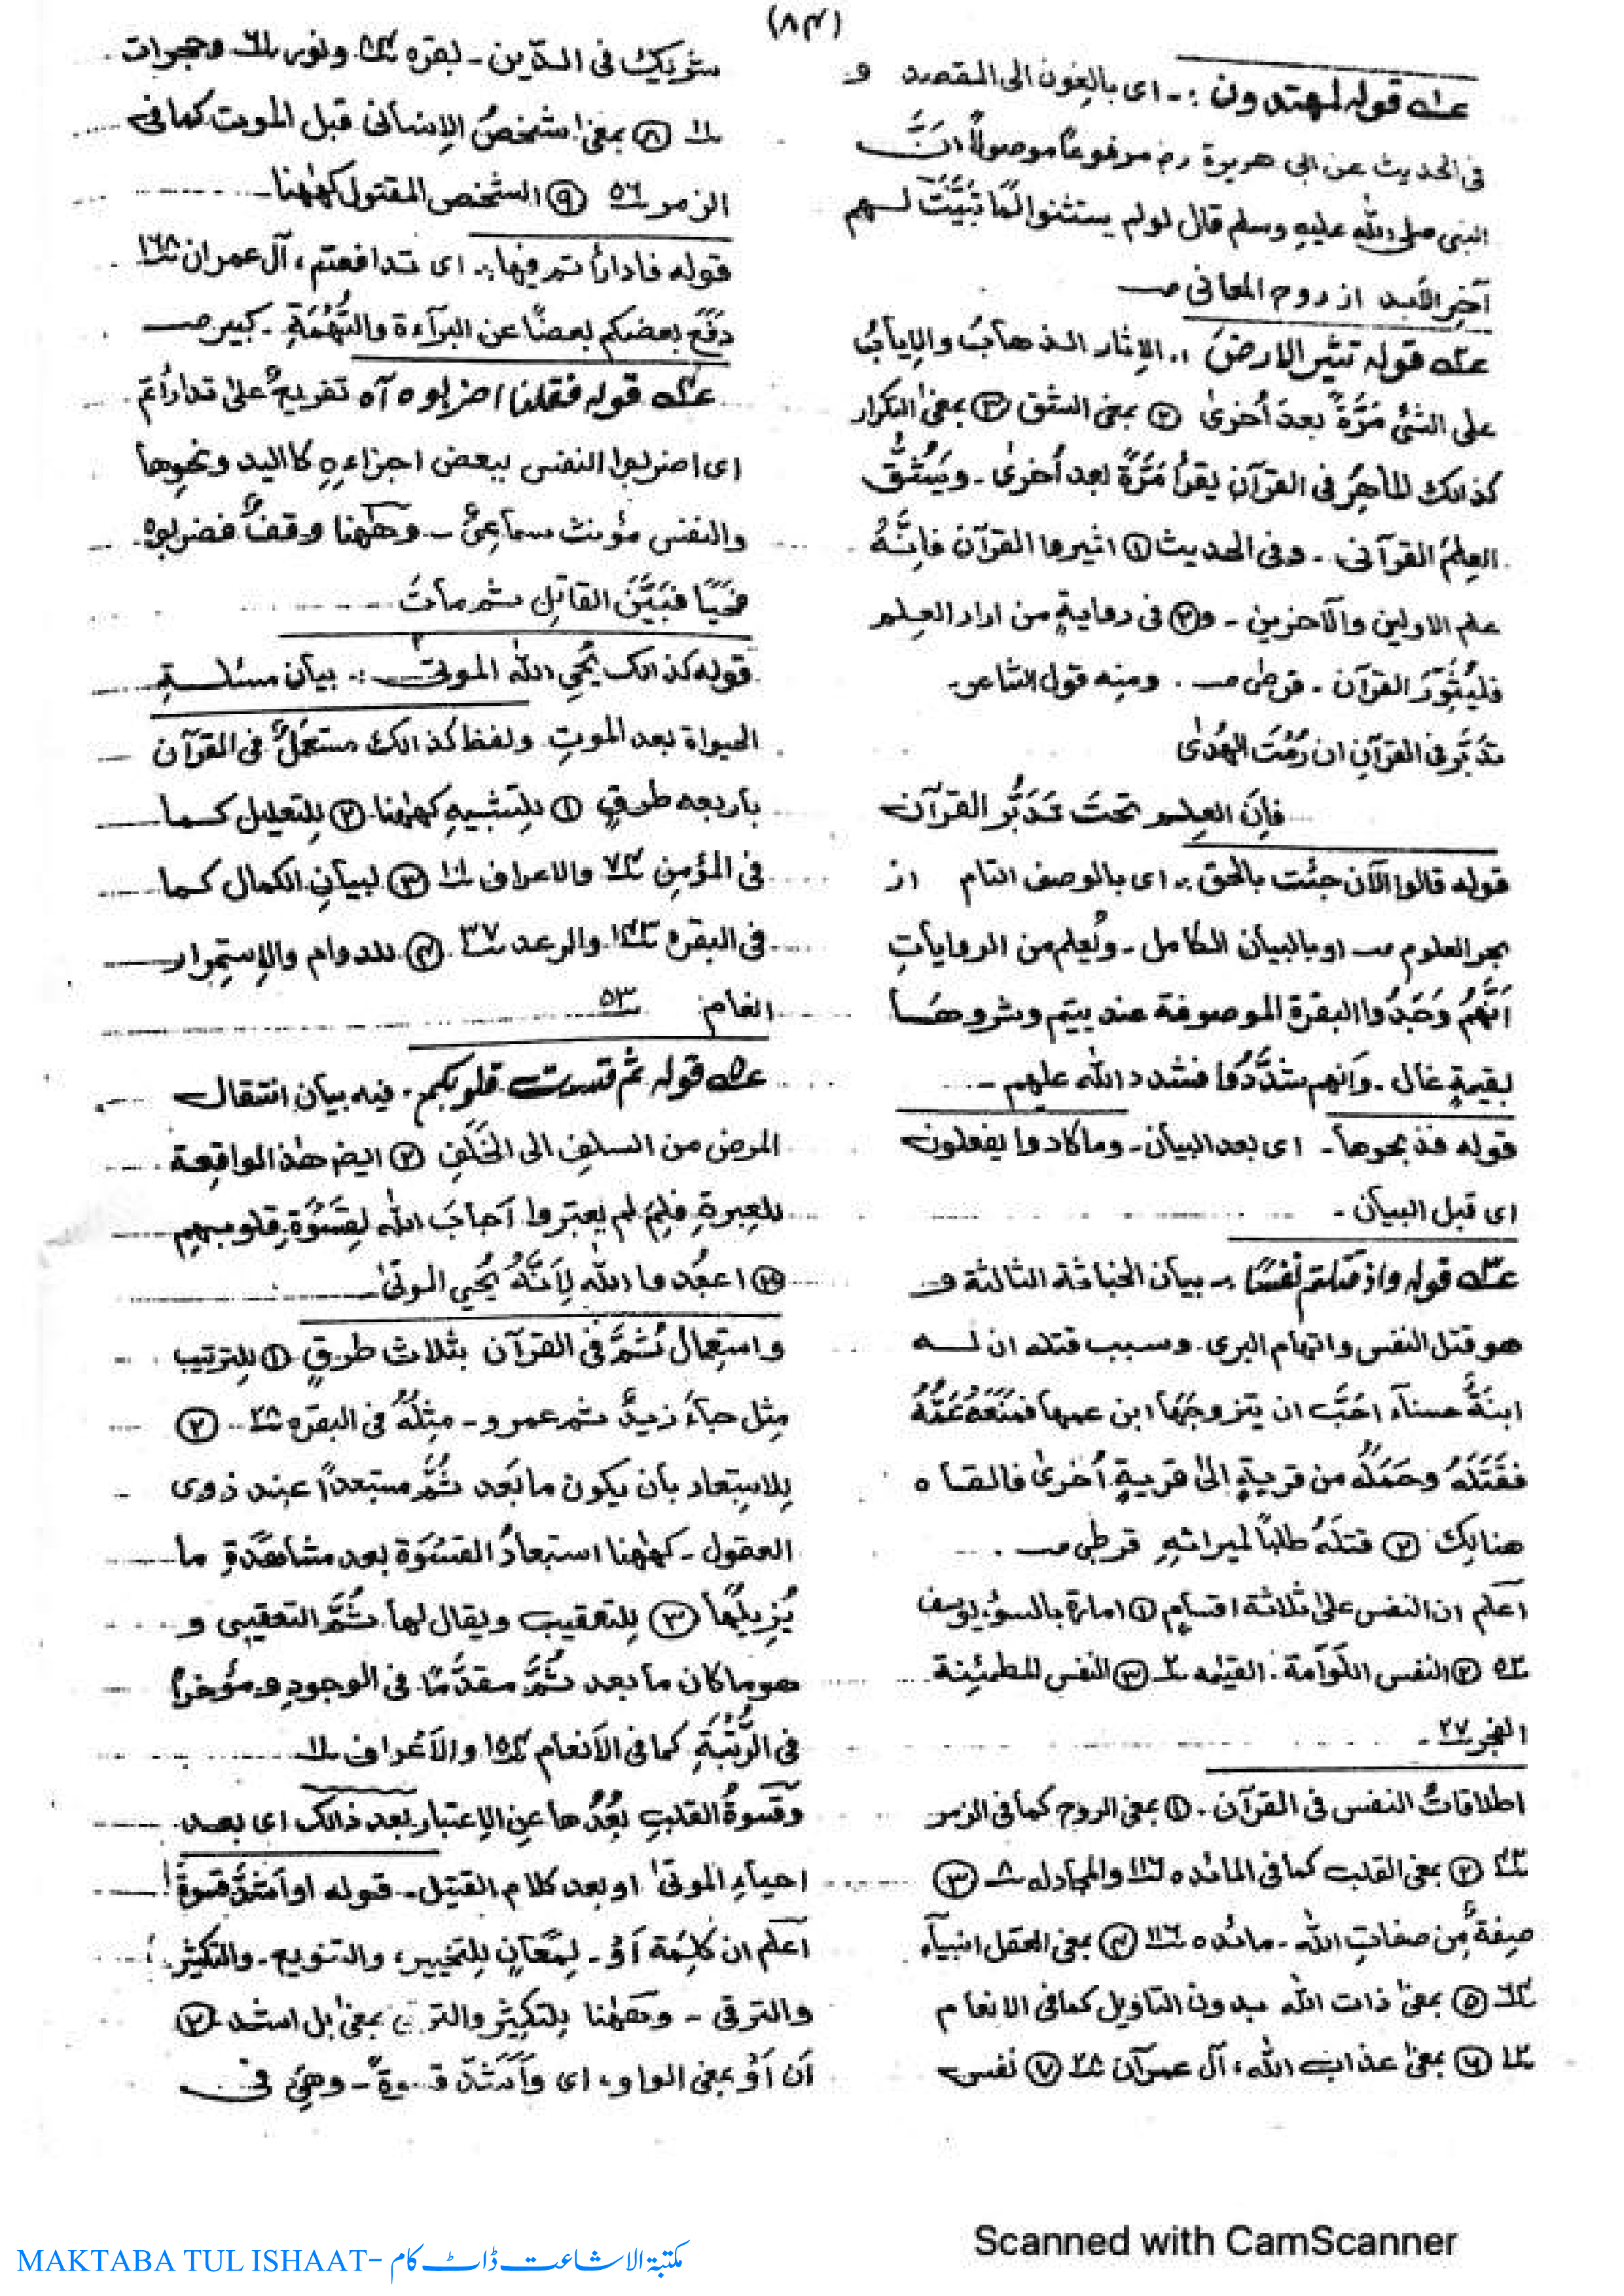 (٨٤)
عـ١ـه قوله لمهتدون :ـ ای بالغون الی المقصد و
فی الحدیث عن ابی هریرة رض مرفوعاً موصولاً اَنَّ
النبی صلی الله علیهِ وسلم قال لو لم یستثنوا لَمَا تَبَیَّنَت لـهم
آخِر الاَبد از روح المعانی صــ
عـ٢ـه قوله تثیر الارضَ :ـ الاِثار الـذهابُ والاِیابُ
علی الشئی مَرَّةً بعدَ اُخریٰ ② بمعنی الشق ③ بمعنیٰ التکرار
کذالک الماهِرُ فی القرآن یَقرأُ مَرَّةً بعد اُخریٰ ـ ویَشُقُّ
العِلمَ القرآنی ـ وفی الحدیث ① اثیروا القرآن فاِنَّهُ
علم الاولین والآخرین ـ و② فی روایةٍ من اراد العِـلم
فلیُثَوِّرُ القرآن ـ قرطبی صــ ومِنه قول الشاعر
تَدَبَّر فی القرآنِ ان رُمْتَ الهُدیٰ
فاِنَّ العِلـم تحتَ تَدَبُّرِ القرآن
قوله قالوا الآن جئت بالحق :ـ ای بالوصف التام از
بحر العلوم صــ او بالبیان الکامل ـ ویُعلم من الروایاتِ
اَنَّهُمْ وَجَدُوا البقرة الموصوفة عند یتیمٍ وشروهَـا
بقیمةٍ غال ـ وَانهم شَدَّدُوا فشدد الله علیهم ـ
قوله فذبحوها ـ ای بعد البیان ـ وما کادوا یفعلون
ای قبل البیان ـ
عـ٣ـه قوله واذ قتلتم نَفْسًا :ـ بیان الخباثة الثالثة و
هو قتل النفس واتهام البری ـ وسبب قتله ان لـه
ابنَةٌ حسنآء اَحَبَّ ان یتزوجَهَا ابن عمها فَمَنَعَهُ عَمُّهُ
فقَتَلَهُ وحَمَلَهُ من قریةٍ اِلیٰ قریةٍ اُخریٰ فالقـاه
هنالِکَ ② قتلَهُ طلباً لمیراثهِ قرطبی صــ
اَعلم ان النفس علیٰ ثلاثة اقسامٍ ① امارة بالسوْٓءِ یوسف
٥٣ ② النفس اللوّامة ـ القیٰمه ٢ ③ النفس المطمئِنة
الفجر ٢٧ ـ
اطلاقاتُ النفس فی القرآن ـ ① بمعنی الروح کما فی الزمر
٤٢ ② بمعنی القلب کما فی المائده ١١٦ والمجادله ٨ ③
صِفةٌ مِن صفاتِ الله ـ مائده ١١٦ ④ بمعنی العقل انبیآء
٦٤ ⑤ بمعنیٰ ذات الله بدون التاویل کما فی الانعام
١٢ ⑥ بمعنیٰ عذاب الله ، آل عمرآن ٢٨ ⑦ نفس
شریک فی الـدّین ـ بقره ٨٤ ونور ٦١ وحجرات
١١ ⑧ بمعنیٰ شخصُ الاِنسانی قبل الموت کما فی
الزمر ٥٦ ⑨ الشخص المقتول کهٰهنا
قوله فادارأتم فیها :ـ ای تدافعتم ، آل عمران ١٦٨
دَفَعَ بعضکم بعضًا عن البرآءة والتُّهْمَةِ ـ کبیر صــ
عـ٤ـه قوله فقلنا اضربوه آه تفریعٌ علیٰ تدارأتم
ای اضربوا النفس ببعض اجزاءِهِ کا الید ونحوِها
والنفس مؤنث سماعیٌ ـ وهٰهنا وقفٌ فضربوه
فحَیًّا فبَیَّنَ القاتِل ثم ماتَ
قوله کذالک یُحْیِ الله الموتیٰ :ـ بیان مسئلـةِ
الحیواة بعد الموتِ ولفظ کذالک مستعمَلٌ فی القرآن
باربعه طرقٍ ① لِلتشبیهِ کهٰهنا ② لِلتعلیل کـما
فی المؤمن ٧٤ والاعراف ١٠١ ③ لبیانِ الکمال کما
فی البقره ١٤٣ والرعد ٣٧ ④ للدوام والاِستِمرار
انعام ٥٣
عـ٥ـه قوله ثم قست قلوبکم ـ فیه بیان انتقال
المرض من السلفِ الی الخَلَفِ ② الیضـ هٰذ الواقعة
للعِبرةِ فلِمَ لم یعتبروا اَجابَ الله لِقَسْوَةِ قلوبهم
③ اعبُدوا الله لِاَنَّهُ یُحْیِ الموتیٰ
واستِعمالُ ثُمَّ فی القرآن بثلاث طرقٍ ① لِلترتیب
مِثل جآءَ زیدٌ ثم عمرو ـ مِثلُهُ فی البقره ٢٨ ②
لِلاستِبعاد بأن یکون ما بَعد ثُمَّ مستبعداً عِند ذوی
العقول ـ کهٰهنا استبعادُ القَسْوَة بعد مشاهَدَةِ ما
یُزِیلُهَا ③ لِلتعقیب ویقال لها ثُمَّ التعقیبی و
هو ما کان ما بعد ثُمَّ مقدَّمًا فی الوجودِ ومؤخراً
فی الرُّتْبَةِ کما فی الاَنعام ١٥٤ والاَعْراف ١١
وقَسوةُ القلبِ بُعْدُها عنِ الاِعتبار بعد ذالک ای بعـد
احیآءِ الموتیٰ او بعد کلام القتیل ـ قوله او اَشَدُّ قسوةً
اَعلم ان کَلِمَة اَوْ ـ لِمَعَانٍ لِلتخییر ، والتنویع ـ والتکثیر
والترقی ـ وهٰهنا لِلتکثیر والترقی بمعنیٰ بل اشد ②
اَن اَوْ بمعنی الواو ، ای وَاَشَدّ قسوةً ـ وهِیَ فی
Scanned with CamScanner
MAKTABA TUL ISHAAT- مکتبة الاشاعت ڈاٹ کام